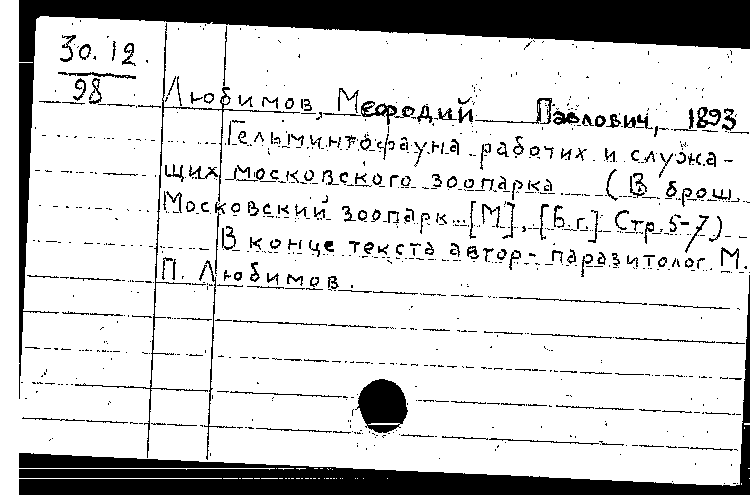 30.12.
98
Любимов, Мефодий Павлович, 1893
Гельминтофауна рабочих и служа-
щих московского зоопарка (В брош.
Московский зоопарк. [М], [б.г.] Стр. 5-7)
В конце текста автор - паразитолог М.
П. Любимов.